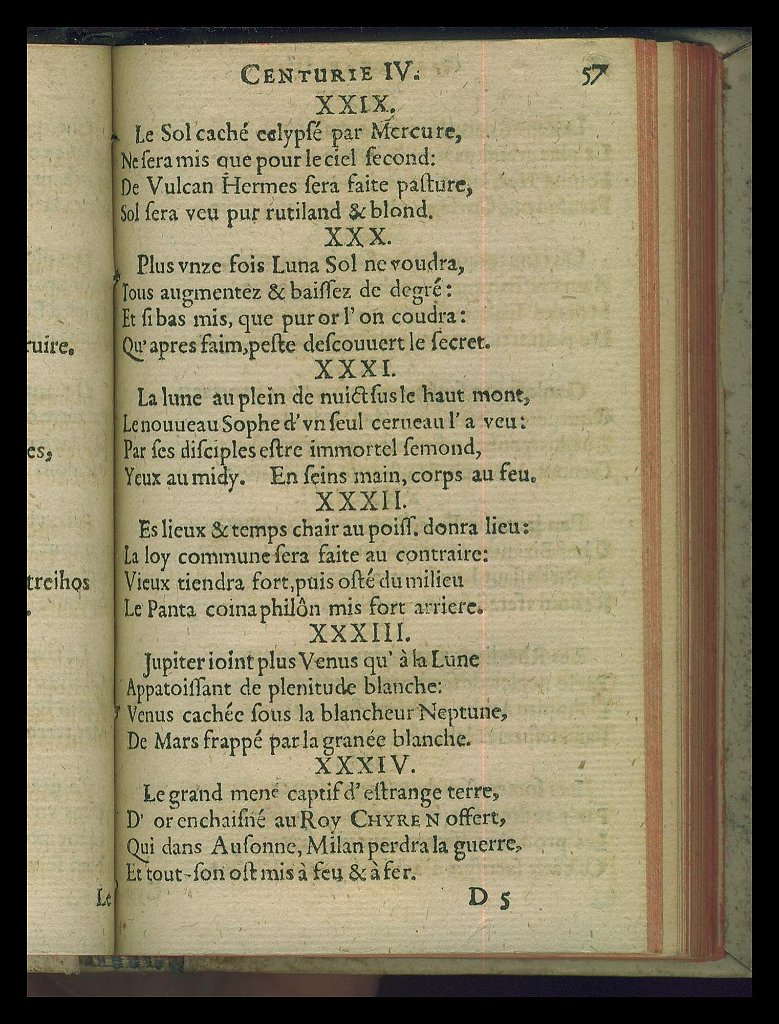 ruire.
es,
treihos
.
Le
CENTURIE IV. 57
XXIX.
Le Sol caché eclypſé par Mercure,
Ne ſera mis que pour le ciel ſecond:
De Vulcan Hermes ſera faite paſture,
Sol ſera veu pur rutiland & blond.
XXX.
Plus vnze fois Luna Sol ne voudra,
Tous augmentez & baiſſez de degré:
Et ſi bas mis, que pur or l'on coudra:
Qu'apres faim, peſte deſcouuert le ſecret.
XXXI.
La lune au plein de nuict sus le haut mont,
Le nouueau Sophe d'vn ſeul cerueau l'a veu:
Par ſes diſciples eſtre immortel ſemond,
Yeux au midy. En ſeins main, corps au feu.
XXXII.
Es lieux & temps chair au poiſſ. donra lieu:
La loy commune ſera faite au contraire:
Vieux tiendra fort, puis oſté du milieu
Le Panta coina philôn mis fort arriere.
XXXIII.
Jupiter ioint plus Venus qu'à la Lune
Appatoiſſant de plenitude blanche:
Venus cachée ſous la blancheur Neptune,
De Mars frappé par la granée blanche.
XXXIV.
Le grand mené captif d'eſtrange terre,
D'or enchaiſné au Roy CHYREN offert,
Qui dans Auſonne, Milan perdra la guerre,
Et tout-ſon oſt mis à feu & à fer.
D 5